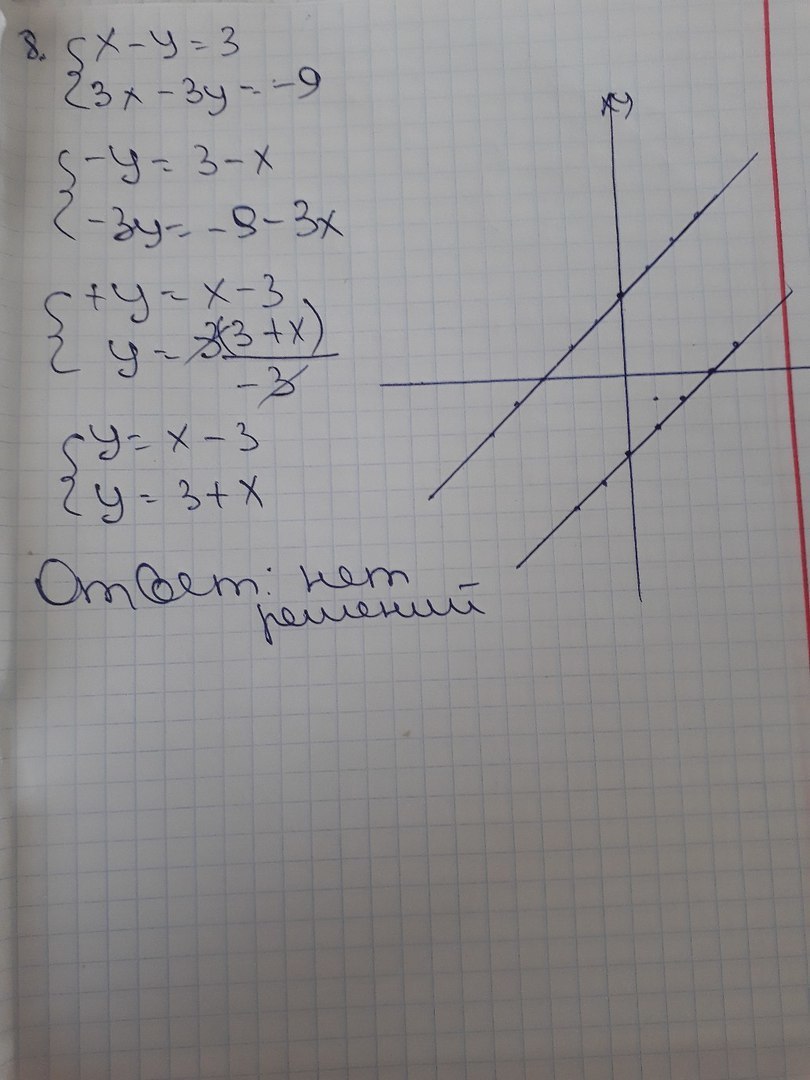 8. { x - y = 3
3x - 3y = -9
{ -y = 3 - x
-3y = -9 - 3x
{ +y = x - 3
y = 3(3 + x) / -3
{ y = x - 3
y = 3 + x
Ответ: нет
решений
y